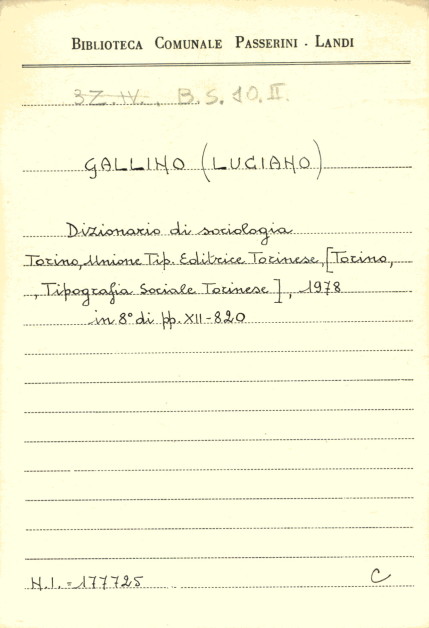 BIBLIOTECA COMUNALE PASSERINI - LANDI
3Z.IV., B.S.10.II.
GALLINO (LUCIANO)
Dizionario di sociologia
Torino, Unione Tip. Editrice Torinese, [Torino,
, Tipografia Sociale Torinese], 1978
in 8° di pp. XII-820
N.I. = 177725 C